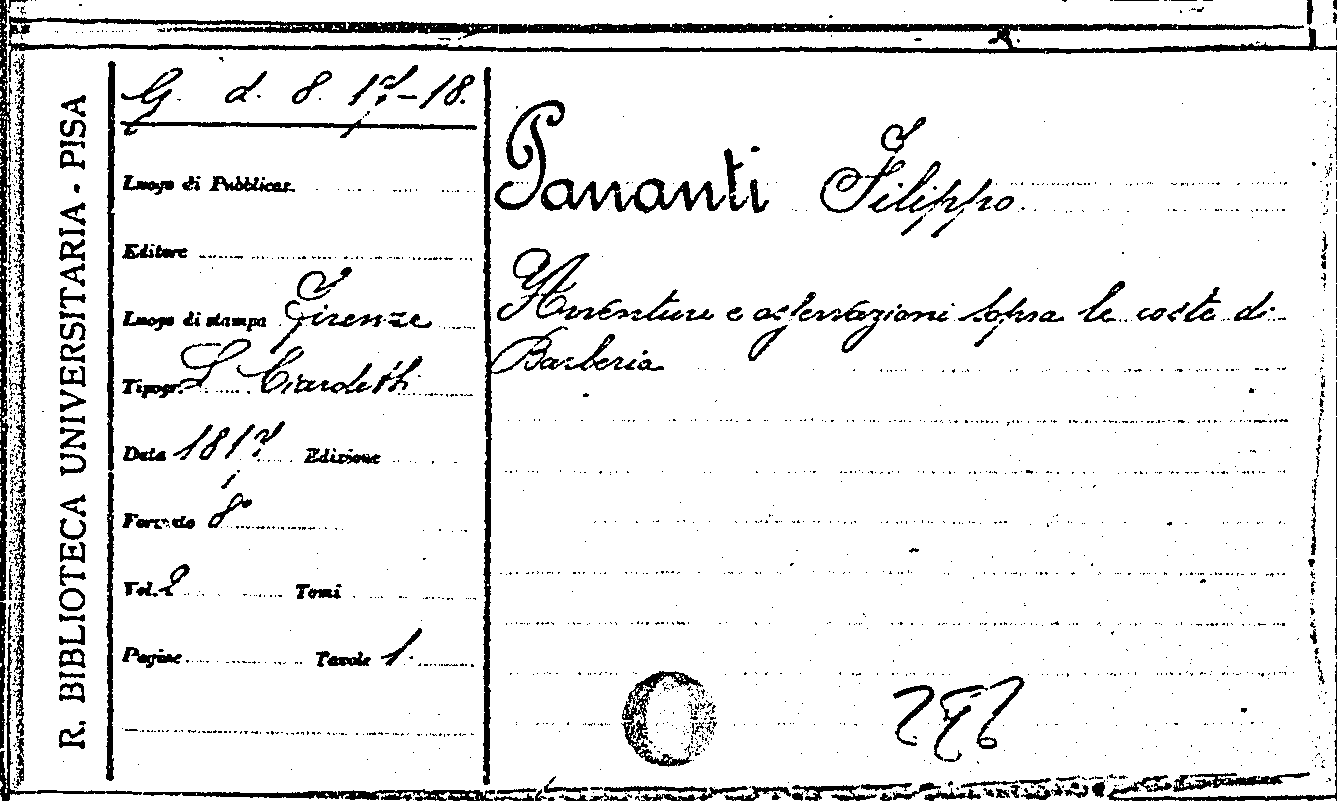 R. BIBLIOTECA UNIVERSITARIA - PISA
G. d. 8. 17-18.
Luogo di Pubblicaz.
Editore
Luogo di stampa Firenze
Tipogr. L. Ciardetti
Data 1817 Edizione
Formato 8°
Vol. 2 Tomi
Pagine Tavole 1.
Pananti Filippo
Avventure e osservazioni sopra le coste di
Barberia